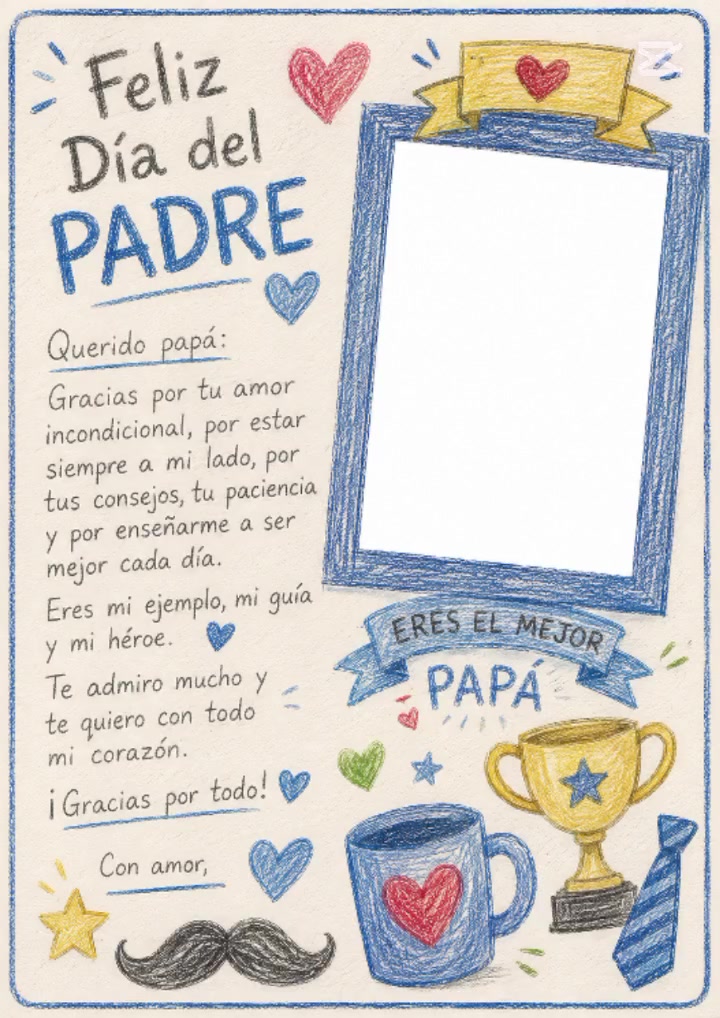 Feliz
Día del
PADRE
Querido papá:
Gracias por tu amor
incondicional, por estar
siempre a mi lado, por
tus consejos, tu paciencia
y por enseñarme a ser
mejor cada día.
Eres mi ejemplo, mi guía
y mi héroe.
Te admiro mucho y
te quiero con todo
mi corazón.
¡Gracias por todo!
Con amor,
ERES EL MEJOR
PAPÁ